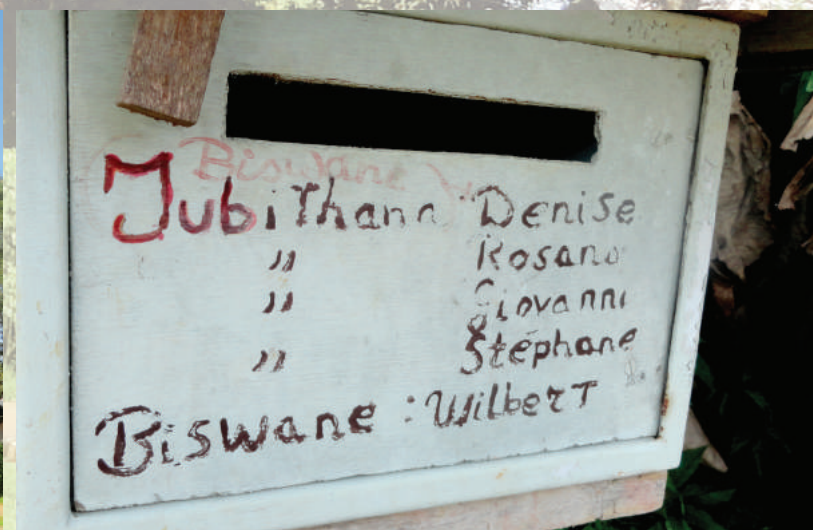 Biswane
Jubithann Denise
" Rosano
" Giovanni
" Stéphane
Biswane : Wilbert